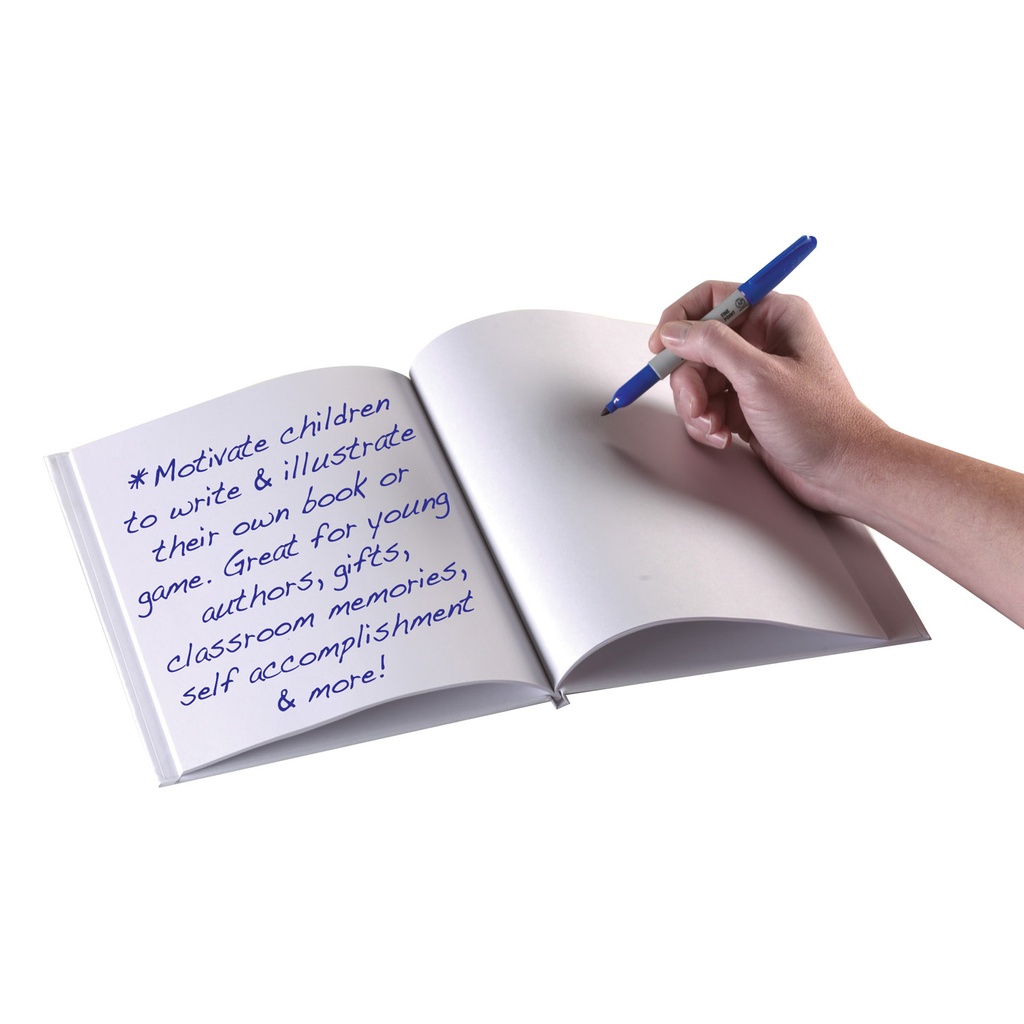 *Motivate children
to write & illustrate
their own book or
game. Great for young
authors, gifts,
classroom memories,
self accomplishment
& more!